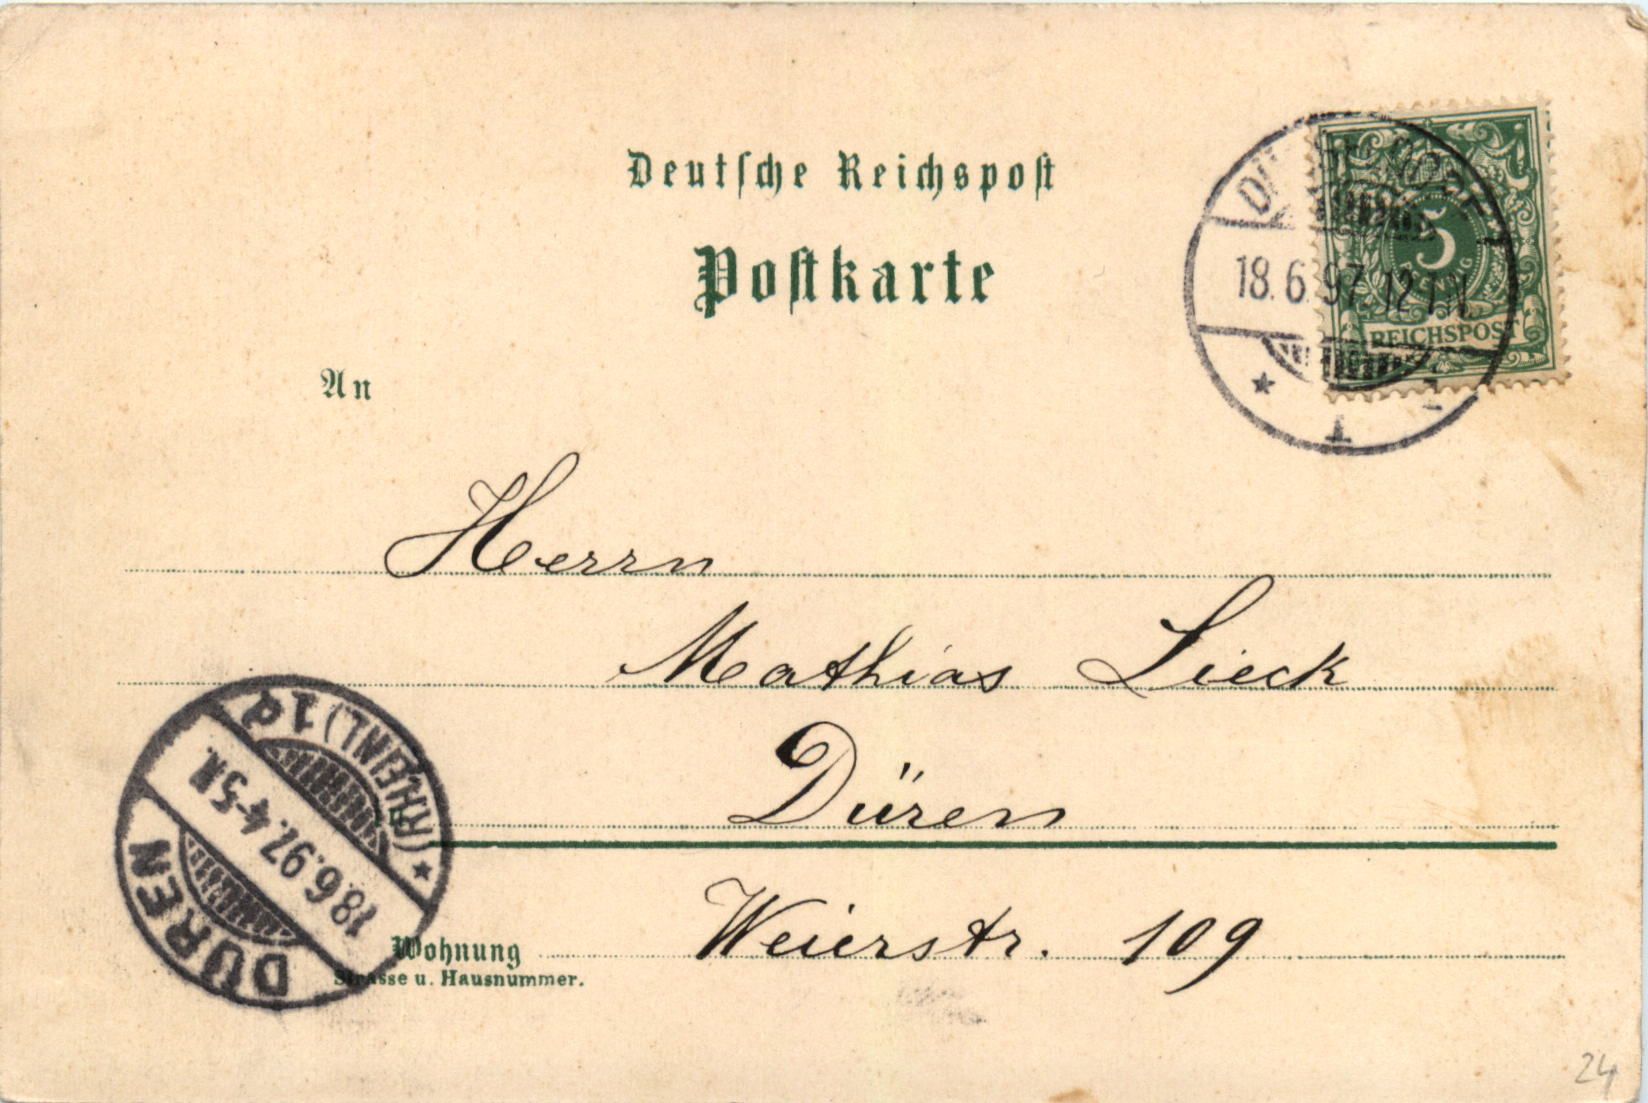 Deutsche Reichspost
Postkarte
An
5
REICHSPOST
18.6.97. 12-1N.
Herrn
Mathias Lieck
Düren
Weierstr. 109
Wohnung
Strasse u. Hausnummer.
DÜREN
18.6.97. 4-5N.
(RHEINL.) 1d
24